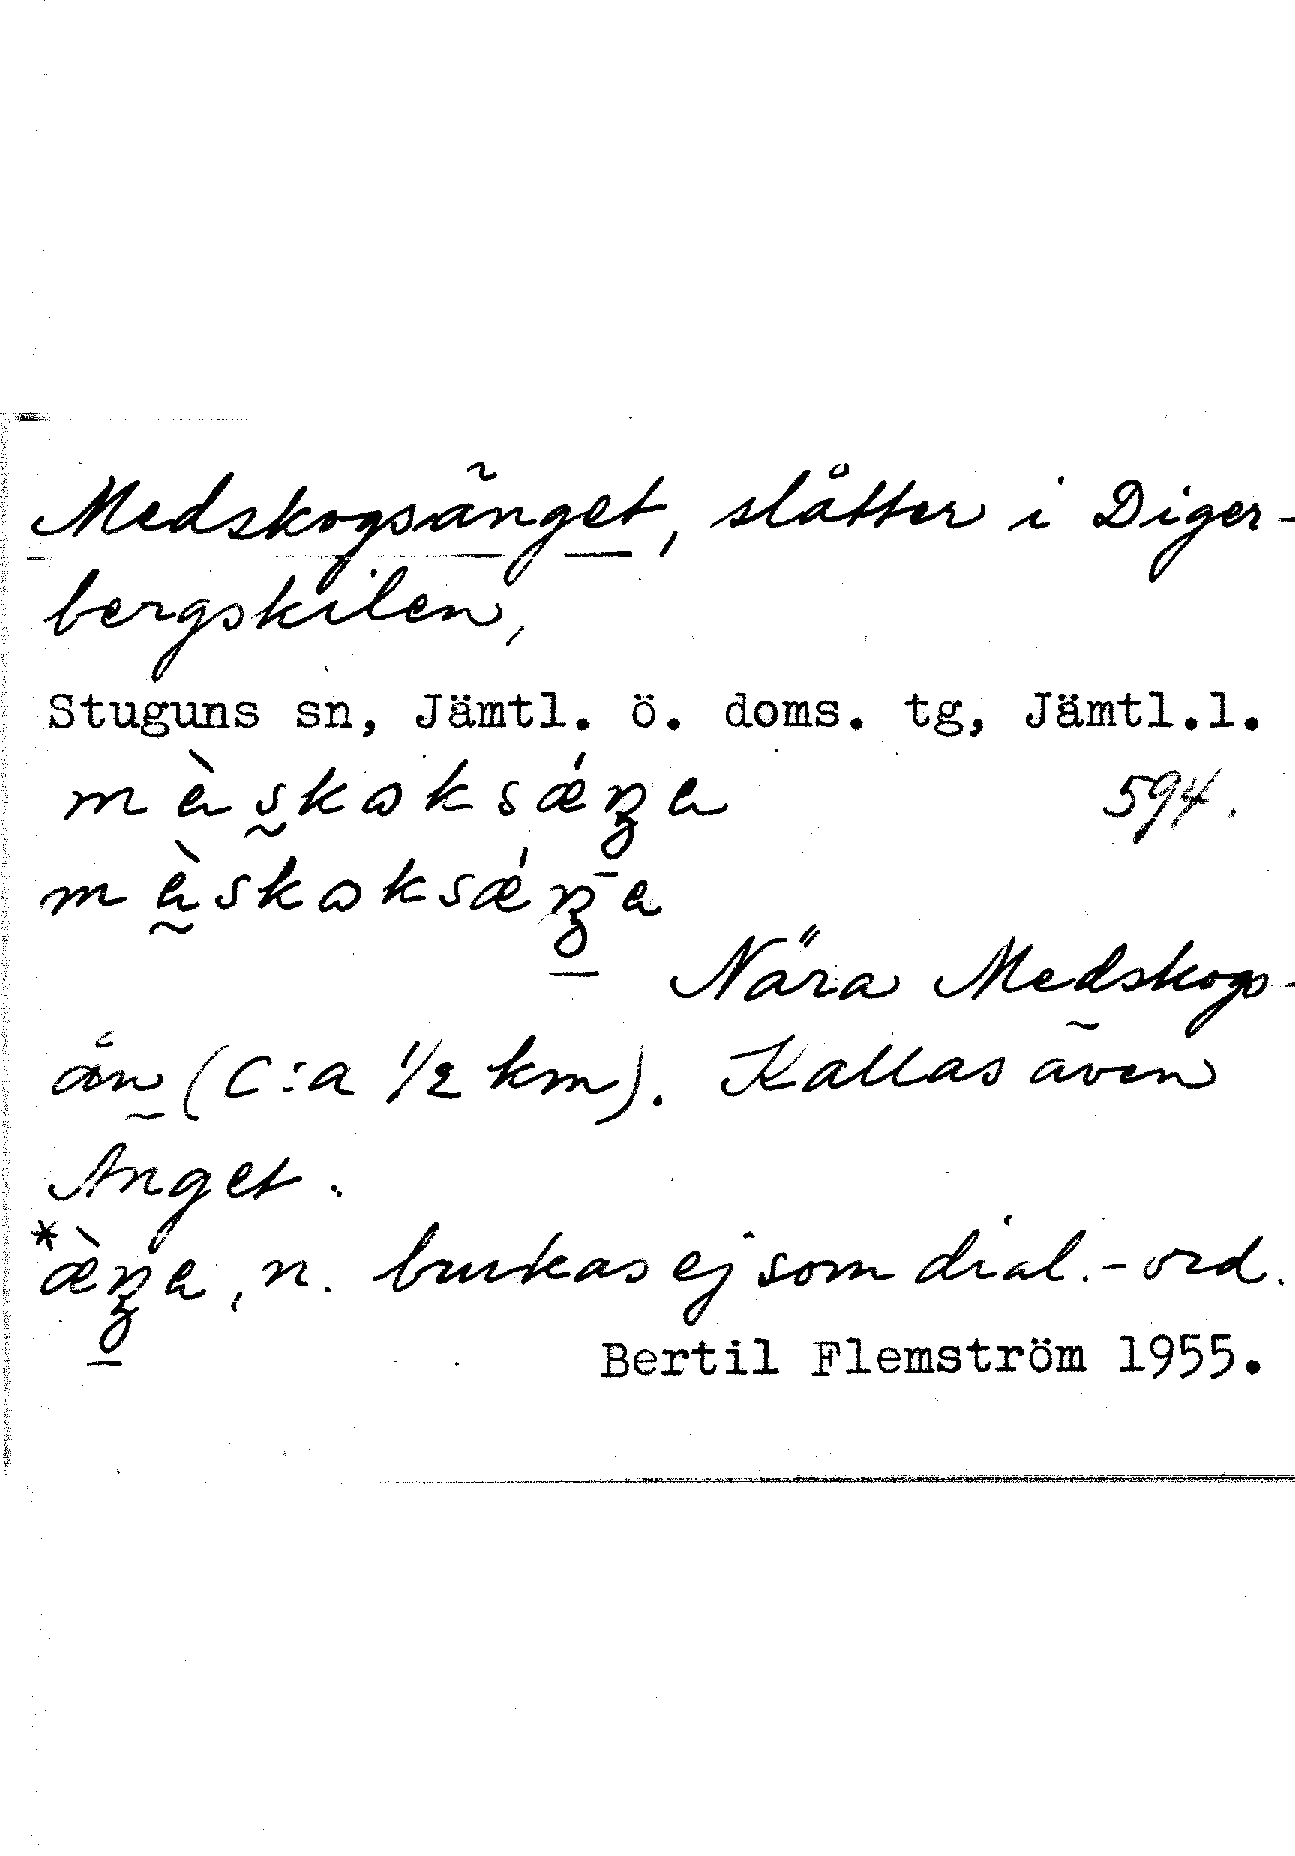 Medskogsänget, slåtter i Diger-
bergskilen,
Stuguns sn, Jämtl. ö. doms. tg, Jämtl.l.
594.
Nära Medskogs-
ån (c:a 1/2 km). Kallas även
Änget.
n. brukas ej som dial.-ord.
Bertil Flemström 1955.